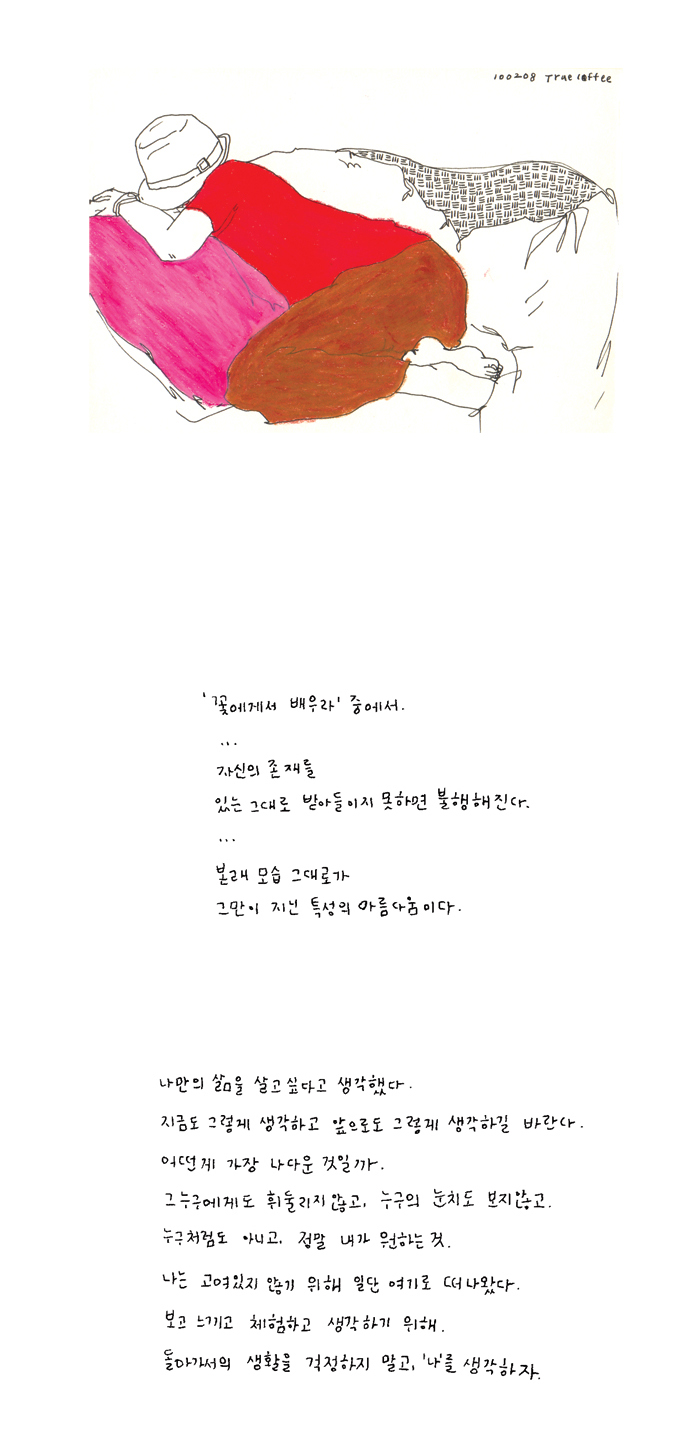 100208 True Coffee
'꽃에게서 배우라' 중에서.
...
자신의 존재를
있는 그대로 받아들이지 못하면 불행해진다.
...
본래 모습 그대로가
그만이 지닌 특성의 아름다움이다.
나만의 삶을 살고싶다고 생각했다.
지금도 그렇게 생각하고 앞으로도 그렇게 생각하길 바란다.
어떤게 가장 나다운 것일까.
그누구에게도 휘둘리지않고, 누구의 눈치도 보지않고.
누구처럼도 아니고, 정말 내가 원하는 것.
나는 고여있지 않기 위해 일단 여기로 떠나왔다.
보고 느끼고 체험하고 생각하기 위해.
돌아가서의 생활을 걱정하지 말고, '나'를 생각하자.